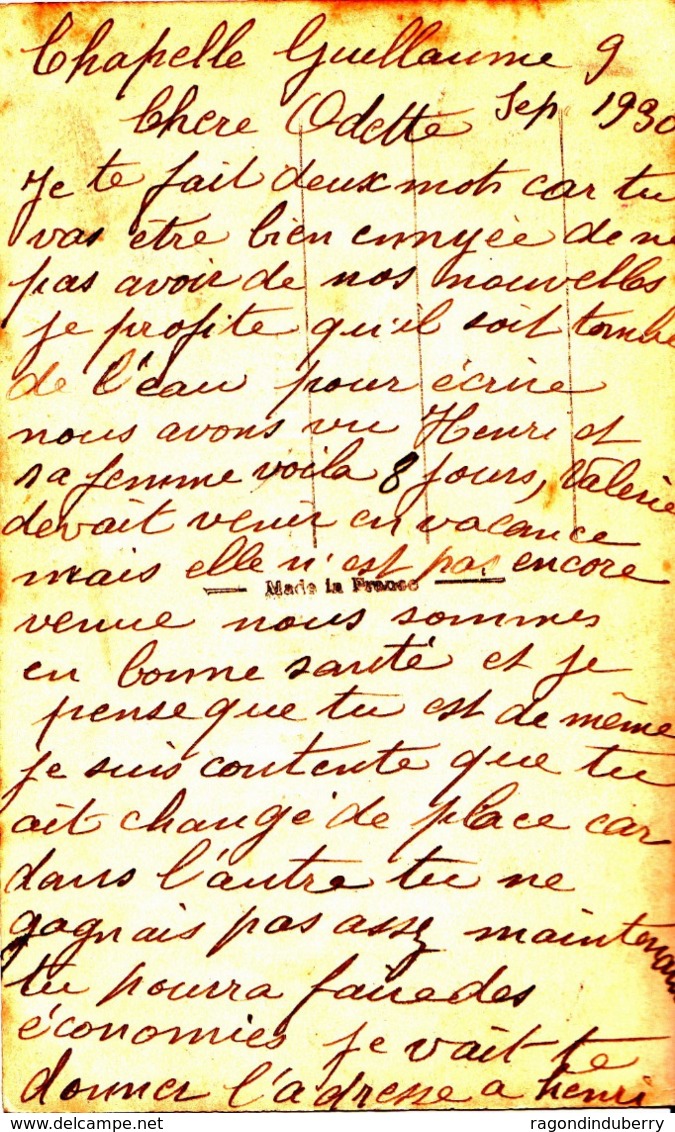 Chapelle Guillaume 9
Chere Odette Sep 1930
Je te fait deux mots car tu
vas être bien ennyée de ne
pas avoir de nos nouvelles
je profite qu'il soit tombé
de l'eau pour écrire
nous avons vu Henri et
sa femme voila 8 jours, Valerie
devait venir en vacance
mais elle n'est pas encore
Made in France
venue nous sommes
en bonne santé et je
pense que tu est de même
je suis contente que tu
ait changé de place car
dans l'autre tu ne
gagnais pas assez maintenant
tu pourra faire des
économies je vait te
donner l'adresse a henri
delcampe.net
ragondinduberry